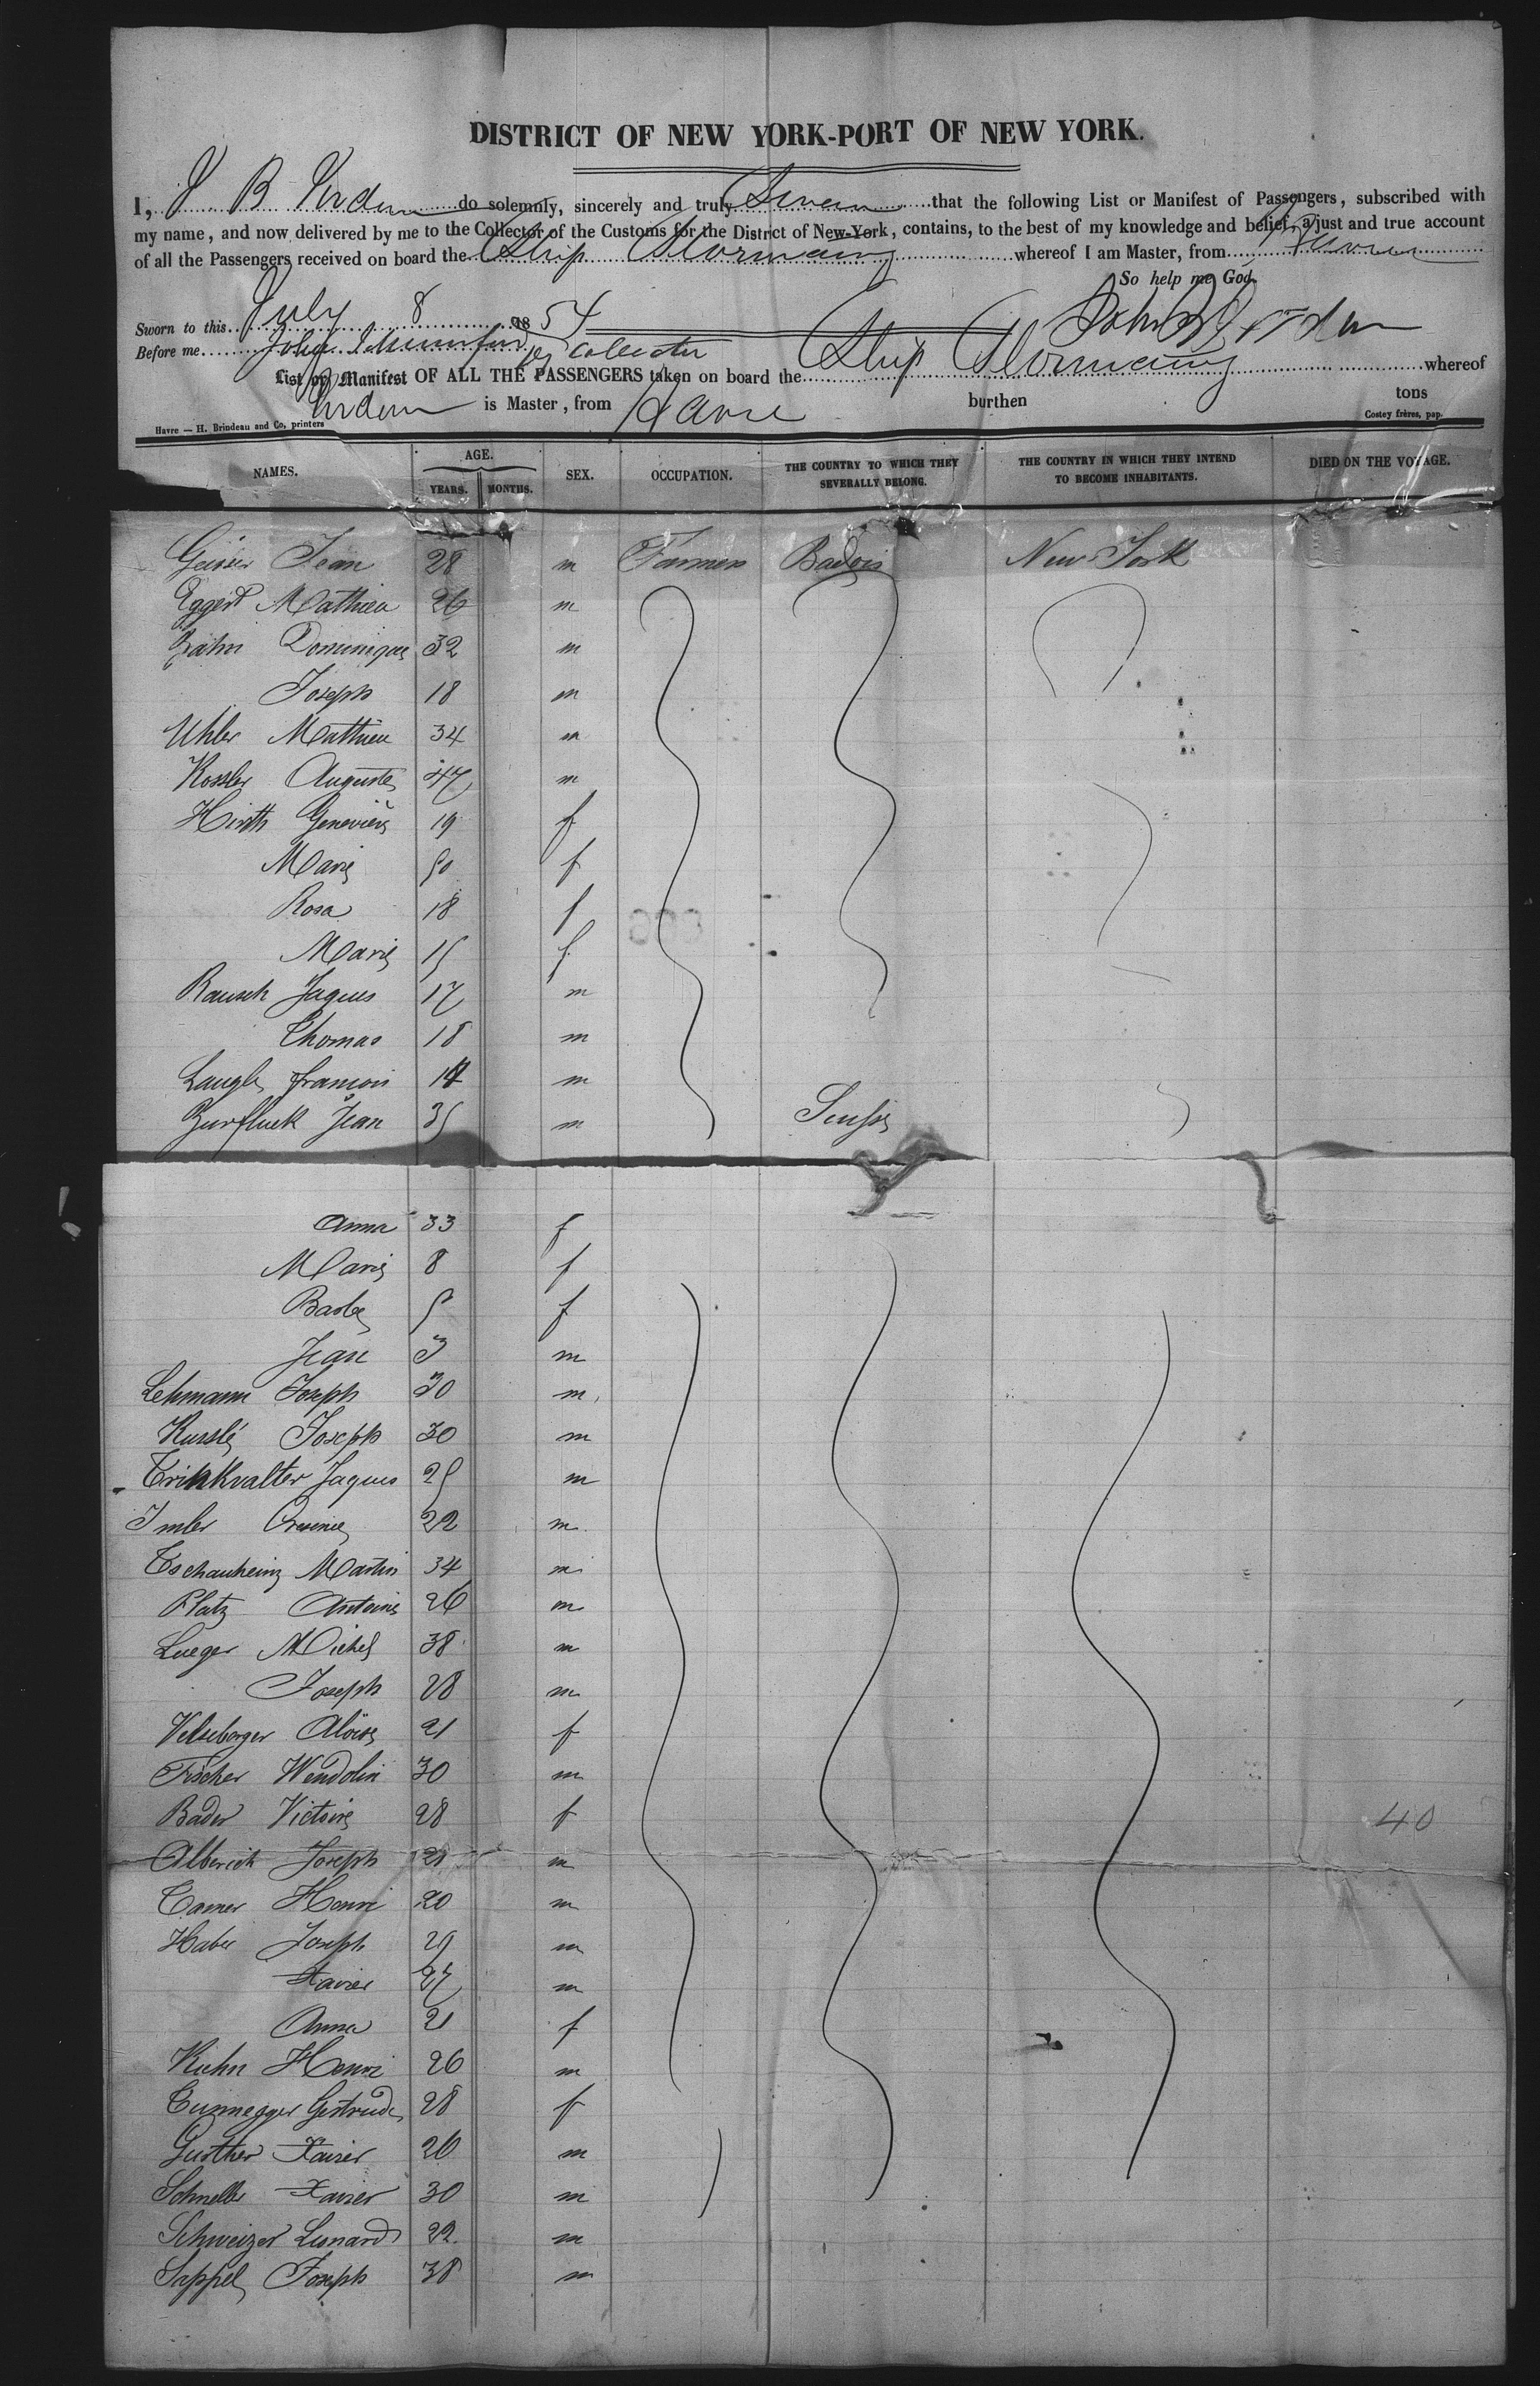 DISTRICT OF NEW YORK-PORT OF NEW YORK.
I, J B Urdem do solemnly, sincerely and truly Swear that the following List or Manifest of Passengers, subscribed with
my name, and now delivered by me to the Collector of the Customs for the District of New-York, contains, to the best of my knowledge and belief, a just and true account
of all the Passengers received on board the Ship whereof I am Master, from Havre
So help me God.
Sworn to this July 8 1854 John B
Before me John Collector
List or Manifest OF ALL THE PASSENGERS taken on board the Ship whereof
is Master, from Havre burthen tons
Havre — H. Brindeau and Co, printers Costey frères, pap.
NAMES. AGE. YEARS. MONTHS. SEX. OCCUPATION. THE COUNTRY TO WHICH THEY SEVERALLY BELONG. THE COUNTRY IN WHICH THEY INTEND TO BECOME INHABITANTS. DIED ON THE VOYAGE.
Geiser Jean 28 m Farmer Badois New York
Eggert Mathieu 26 m
Zahn Dominique 32 m
Joseph 18 m
Uhler Mathieu 34 m
Kossler Auguste 47 m
Hirth Geneviève 19 f
Marie 50 f
Rosa 18 f
Marie 15 f
Rausch Jaques 17 m
Thomas 18 m
Laugle francois m
Zurfluck Jean 35 m Suisse
Anna 33 f
Marie 8 f
Barbe 5 f
Jean 3 m
Lehmann Joseph 30 m
Kusslé Joseph 30 m
Trinkvalter Jaques 25 m
Imler 22 m
Tschanheinz Martin 34 m
Platz Antoine 26 m
Lueger Michel 38 m
Joseph 28 m
Velseberger Aloïse 21 f
Fischer Wendolin 30 m
Bader Victoire 28 f 40
Alberick Joseph 21 m
Tamer Henri 20 m
Haber Joseph 29 m
Xavier 27 m
Anna 21 f
Kuhn Henri 26 m
Tunnegger Gertrude 28 f
Gunther Xavier 26 m
Schnelle Xavier 30 m
Schweizer Leonard 22 m
Sappel Joseph 38 m